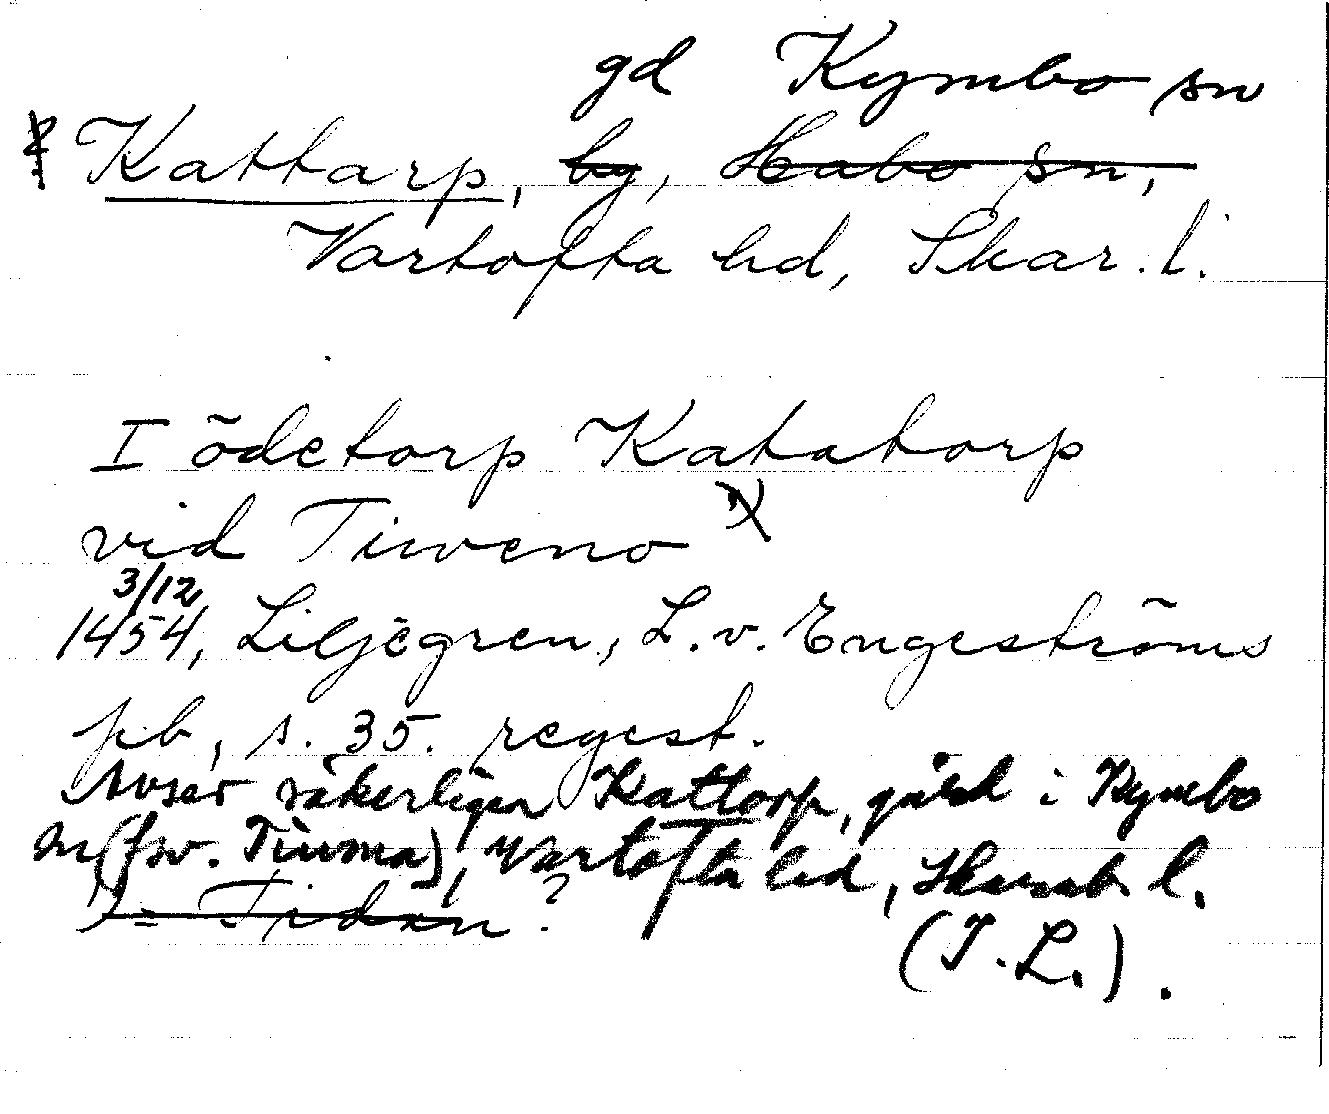 gd Kymbo sn
Kattarp, by, Habo sn,
Vartofta hd, Skar. l.
I ödetorp Katatorp
vid Tiuveno x)
3/12
1454, Liljegren, L. v. Engeströms
pb, s. 35. regest.
Avser säkerligen Kattorp, gård i Kymbo
sn (fsv. Tiuma), Vartofta hd, Skarab. l.
x) = Tidan?
(I. L.).